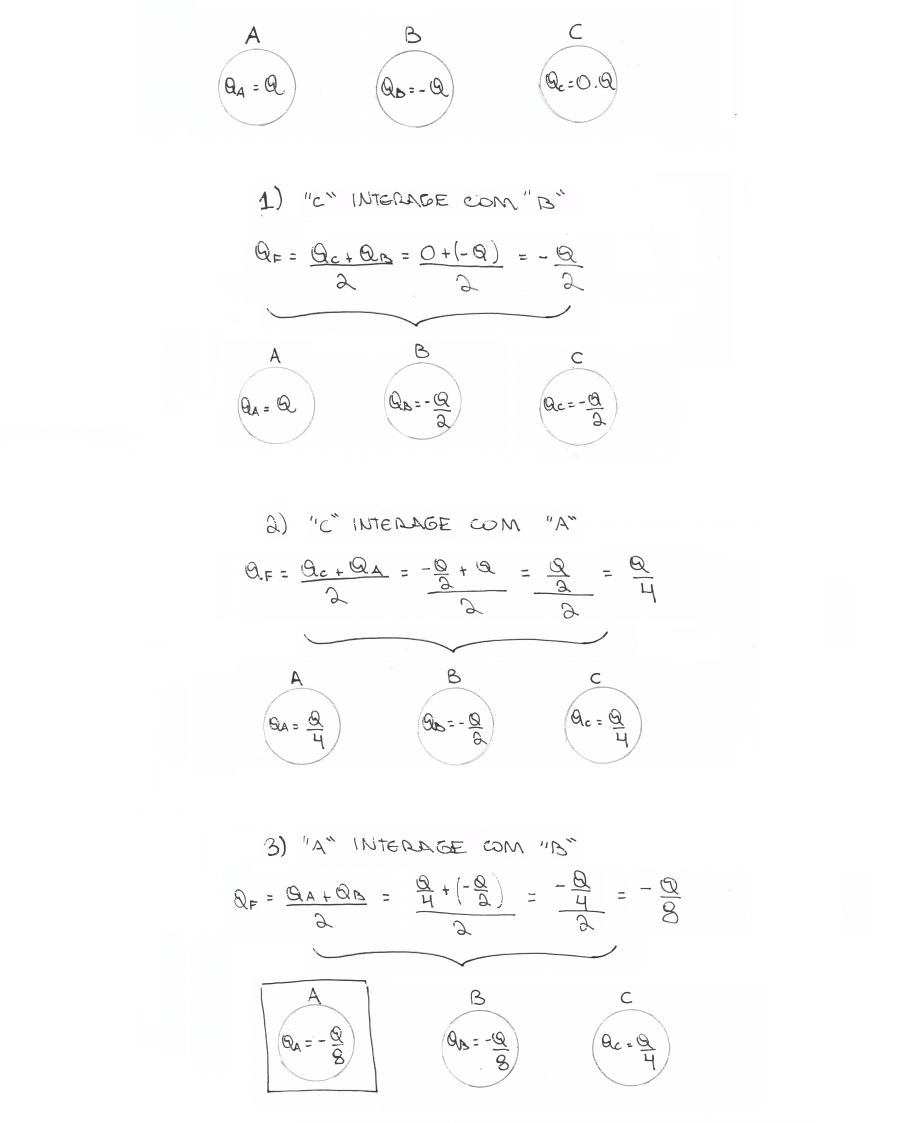 A B C
Q_A = Q Q_B = -Q Q_C = 0.Q
1) "C" INTERAGE COM "B"
Q_F = (Q_C + Q_B)/2 = (0 + (-Q))/2 = -Q/2
A B C
Q_A = Q Q_B = -Q/2 Q_C = -Q/2
2) "C" INTERAGE COM "A"
Q_F = (Q_C + Q_A)/2 = (-Q/2 + Q)/2 = (Q/2)/2 = Q/4
A B C
Q_A = Q/4 Q_B = -Q/2 Q_C = Q/4
3) "A" INTERAGE COM "B"
Q_F = (Q_A + Q_B)/2 = (Q/4 + (-Q/2))/2 = (-Q/4)/2 = -Q/8
A B C
Q_A = -Q/8 Q_B = -Q/8 Q_C = Q/4